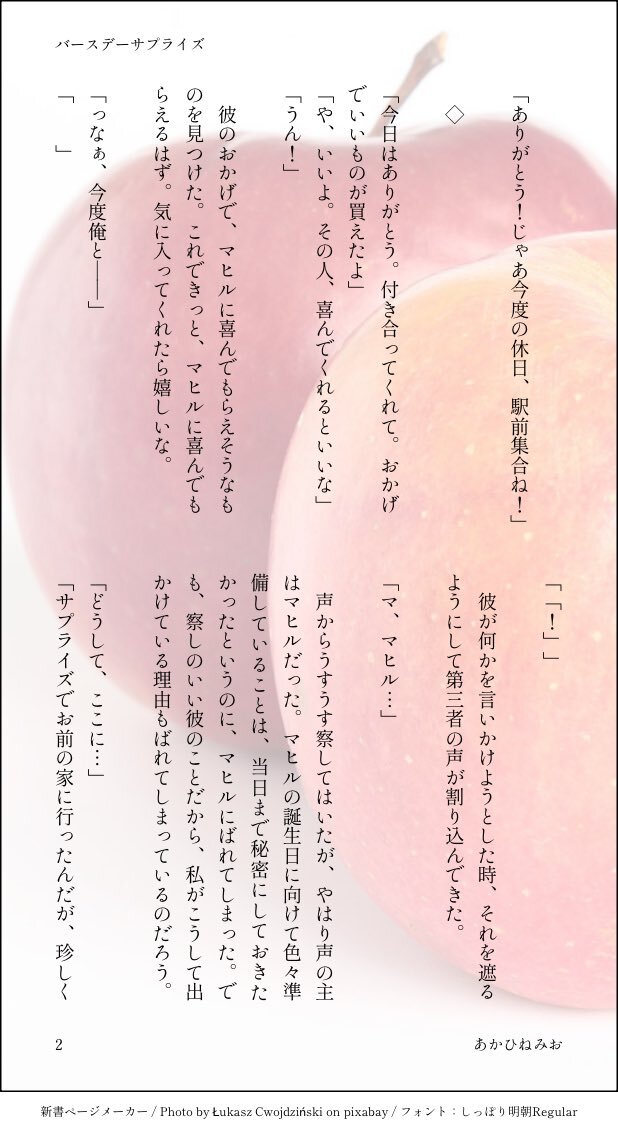 バースデーサプライズ
「ありがとう！じゃあ今度の休日、駅前集合ね！」
◇
「今日はありがとう。付き合ってくれて。おかげ
でいいものが買えたよ」
「や、いいよ。その人、喜んでくれるといいな」
「うん！」
彼のおかげで、マヒルに喜んでもらえそうなも
のを見つけた。これできっと、マヒルに喜んでも
らえるはず。気に入ってくれたら嬉しいな。
「っなぁ、今度俺と――」
「　　」
「「！」」
彼が何かを言いかけようとした時、それを遮る
ようにして第三者の声が割り込んできた。
「マ、マヒル…」
声からうすうす察してはいたが、やはり声の主
はマヒルだった。マヒルの誕生日に向けて色々準
備していることは、当日まで秘密にしておきた
かったというのに、マヒルにばれてしまった。で
も、察しのいい彼のことだから、私がこうして出
かけている理由もばれてしまっているのだろう。
「どうして、ここに…」
「サプライズでお前の家に行ったんだが、珍しく
2
あかひねみお
新書ページメーカー / Photo by Łukasz Cwojdziński on pixabay / フォント：しっぽり明朝Regular